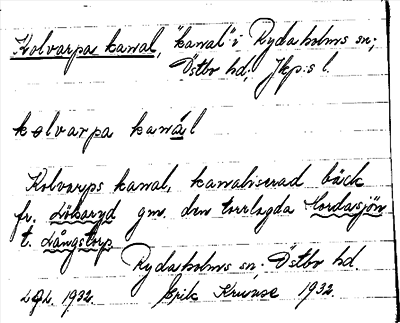 Kolvarpa kanal, "kanal" i Rydaholms sn;
Östbo hd; Jkp:s l.
kolvarpa kanál
Kolvarps kanal, kanaliserad bäck
fr. Lökaryd gm. den torrlagda Cordasjön
t. Långstorp
Rydaholms sn; Östbo hd.
1932. Erik Kruuse 1932.